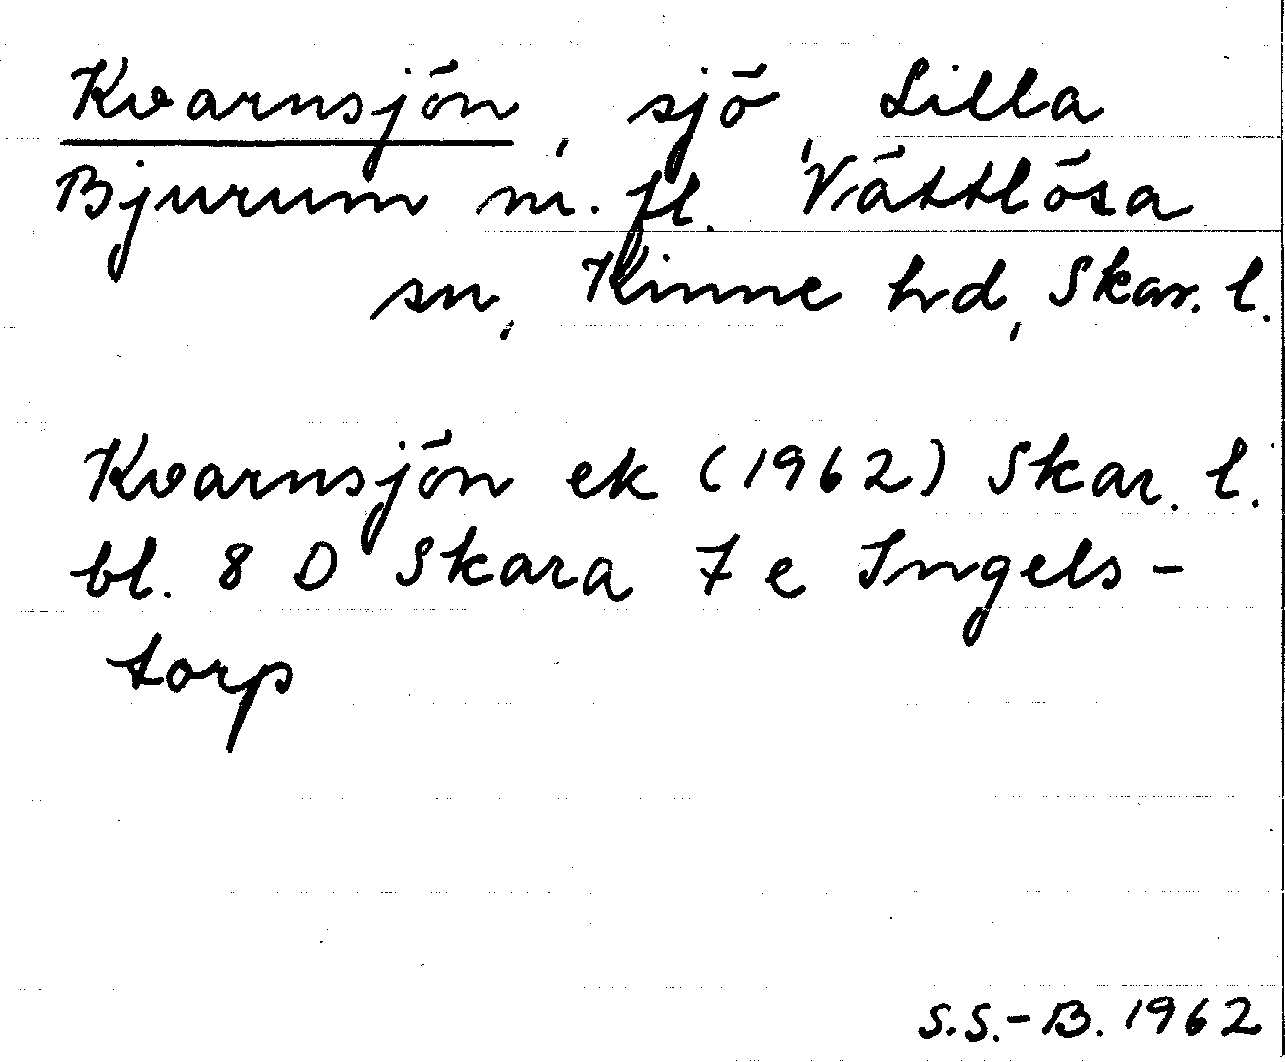 Kvarnsjön, sjö, Lilla
Bjurum m. fl. Vättlösa
sn, Kinne hd, Skar. l.
Kvarnsjön ek (1962) Skar. l.
bl. 8 D Skara 7 e Ingels-
torp
S.S.-B. 1962